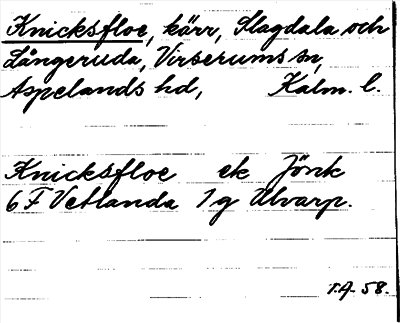 Knicksfloe, kärr, Slagdala och
Långeruda, Virserums sn,
Aspelands hd, Kalm. l.
Knicksfloe ek Jönk
6 F Vetlanda 1 g Alvarp.
T.A. 58.